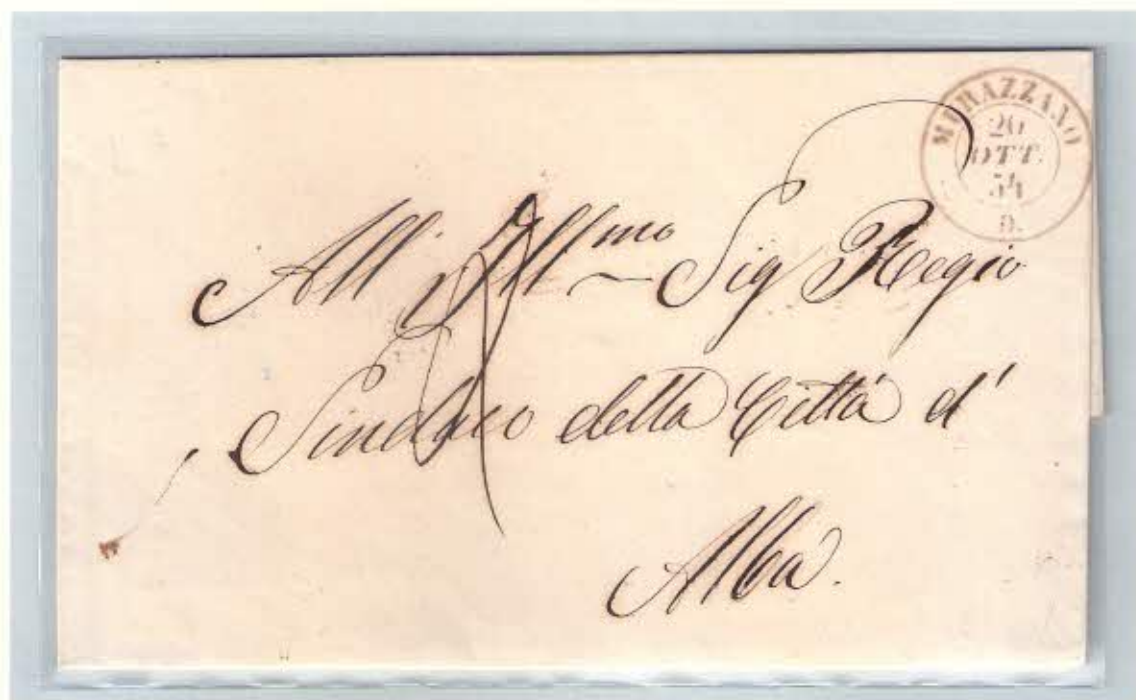 MURAZZANO
26
OTT.
54
D.
All' Ill.mo Sig Regio
Sindaco della Città d'
Alba.